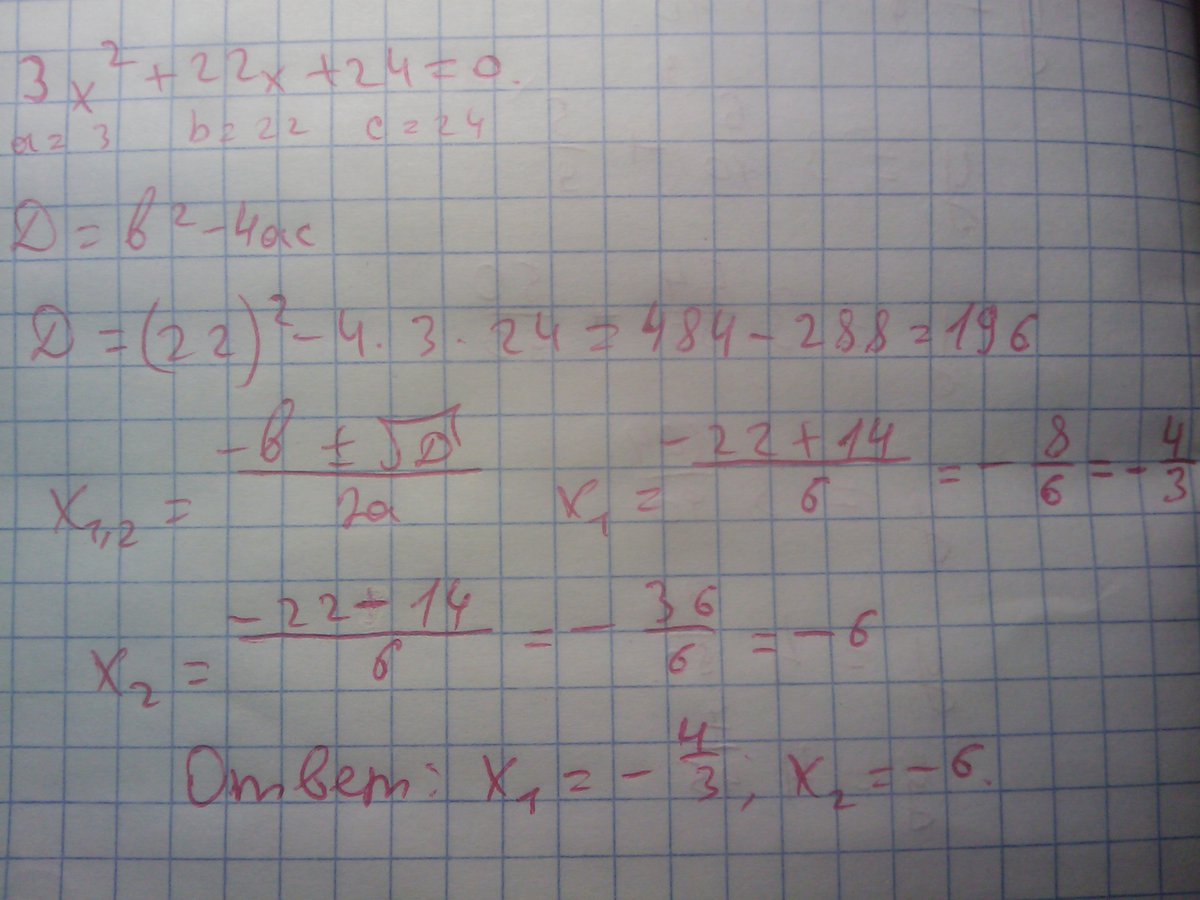 3x² + 22x + 24 = 0.
a = 3 b = 22 c = 24
D = b² - 4ac
D = (22)² - 4 · 3 · 24 = 484 - 288 = 196
x₁,₂ = (-b ± √D)/2a x₁ = (-22 + 14)/6 = -8/6 = -4/3
x₂ = (-22 - 14)/6 = -36/6 = -6
Ответ: x₁ = -4/3; x₂ = -6.